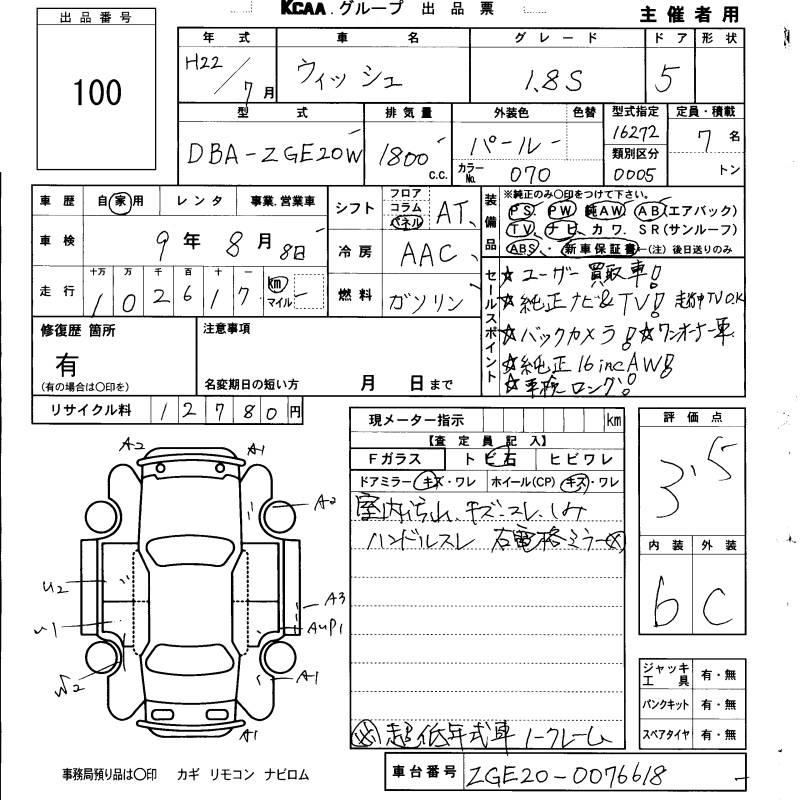 KCAA.グループ 出品票
主催者用
出品番号
100
年式 車名 グレード ドア 形状
H22/7月 ウィッシュ 1.8S 5
型式 排気量 外装色 色替 型式指定 定員・積載
DBA-ZGE20W 1800 c.c. パール 16272 7名
カラーNo. 070 類別区分 0005 トン
車歴 自家用 レンタ 事業.営業車
車検 9年 8月 8日
走行 十万 万 千 百 十 一 km マイル
1 0 2 6 1 7
シフト フロア コラム パネル AT
冷房 AAC
燃料 ガソリン
装備品 ※純正のみ○印をつけて下さい。
PS. PW 純AW. AB(エアバック)
TV. ナビ・カワ. SR(サンルーフ)
ABS・新車保証書←(注)後日送りのみ
セールスポイント
☆ユーザー買取車!
☆純正ナビ&TV! 走行中TVOK
☆バックカメラ! ☆ワンオーナー車
☆純正16incAW!
☆車検ロング!
修復歴 箇所
有
(有の場合は○印を)
注意事項
名変期日の短い方 月 日まで
リサイクル料 12780円
現メーター指示 km
【査定員記入】
Fガラス トビ石 ヒビワレ
ドアミラー キズ・ワレ ホイール(CP) キズ・ワレ
室内汚れ、キズ・コレ、しみ
ハンドルスレ 右電格ミラー✕
㊟超低年式車 ノークレーム
評価点
3.5
内装 外装
b C
ジャッキ工具 有・無
パンクキット 有・無
スペアタイヤ 有・無
A2 A1
A2
U2
A3
U1 AUP1
W2 A1
A1
事務局預り品は○印 カギ リモコン ナビロム
車台番号 ZGE20-0076618